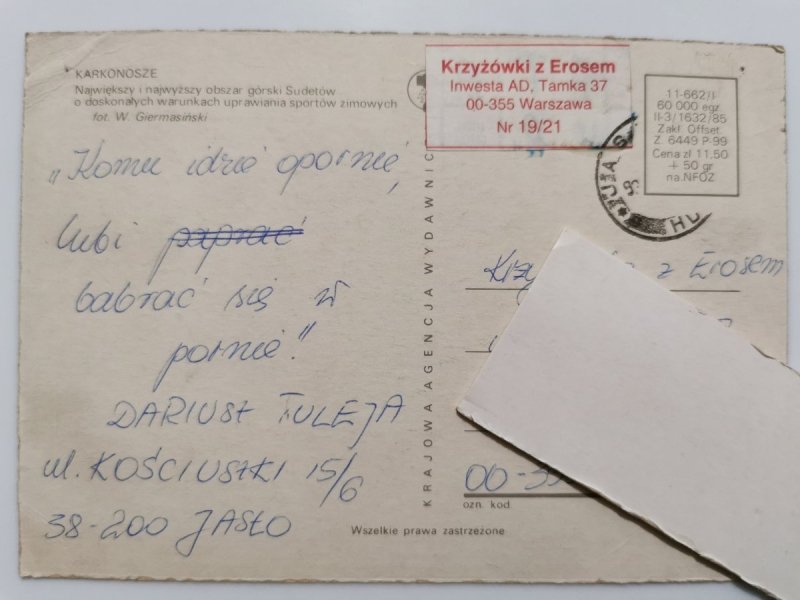 KARKONOSZE
Największy i najwyższy obszar górski Sudetów
o doskonałych warunkach uprawiania sportów zimowych
fot. W. Giermasiński
Krzyżówki z Erosem
Inwesta AD, Tamka 37
00-355 Warszawa
Nr 19/21
11-662/I
60 000 egz.
II-3/1632/85
Zakł. Offset.
Z. 6449 P-99
Cena zł 11,50
+ 50 gr
na NFOZ
„Komu idzie opornie,
lubi paprać
babrać się w
pornie".
DARIUSZ TULEJA
ul. KOŚCIUSZKI 15/6
38-200 JASŁO
KRAJOWA AGENCJA WYDAWNIC
z Erosem
ozn. kod
Wszelkie prawa zastrzeżone